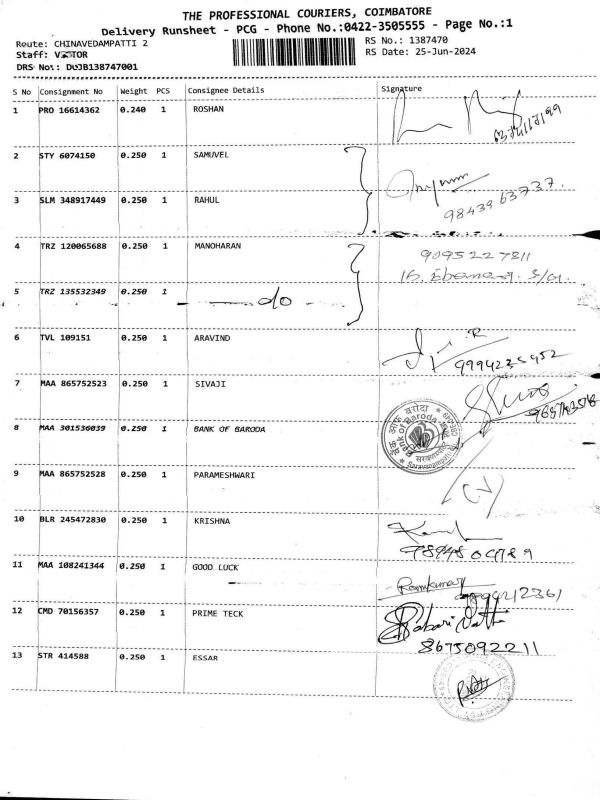 THE PROFESSIONAL COURIERS, COIMBATORE
Delivery Runsheet - PCG - Phone No.:0422-3505555 - Page No.:1
Route: CHINAVEDAMPATTI 2
RS No.: 1387470
Staff: VICTOR
RS Date: 25-Jun-2024
DRS No: DUJB138747001
S No Consignment No Weight PCS Consignee Details Signature
1 PRO 16614362 0.240 1 ROSHAN
2 STY 6074150 0.250 1 SAMUVEL
3 SLM 348917449 0.250 1 RAHUL
9843963737.
4 TRZ 120065688 0.250 1 MANOHARAN
9095227811
5 TRZ 135532349 0.250 1 do
6 TVL 109151 0.250 1 ARAVIND
9994235952
7 MAA 865752523 0.250 1 SIVAJI
8 MAA 301536039 0.250 1 BANK OF BARODA
Bank of Baroda
9 MAA 865752528 0.250 1 PARAMESHWARI
10 BLR 245472830 0.250 1 KRISHNA
11 MAA 108241344 0.250 1 GOOD LUCK
Ramkumar
12 CMD 70156357 0.250 1 PRIME TECK
8675092211
13 STR 414588 0.250 1 ESSAR